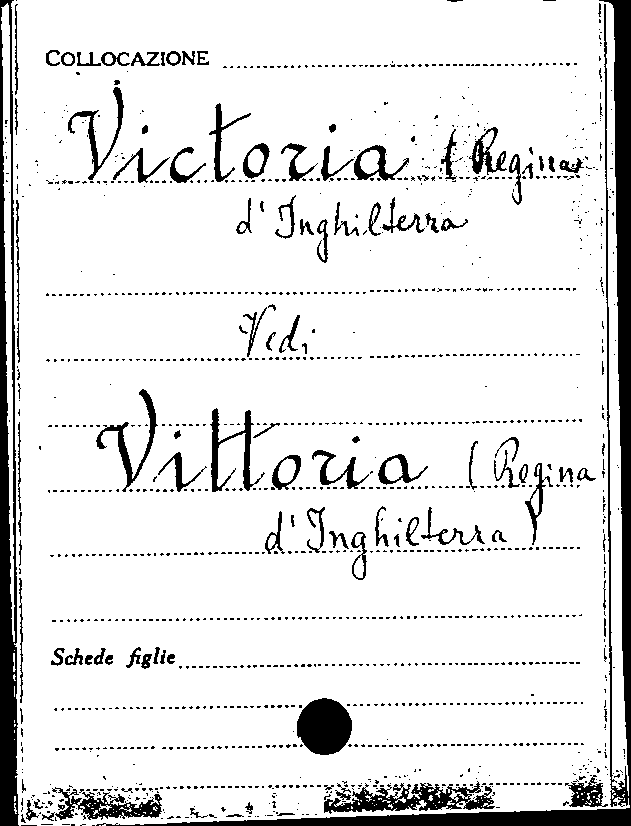 COLLOCAZIONE
Victoria (Regina
d'Inghilterra
Vedi
Vittoria (Regina
d'Inghilterra)
Schede figlie